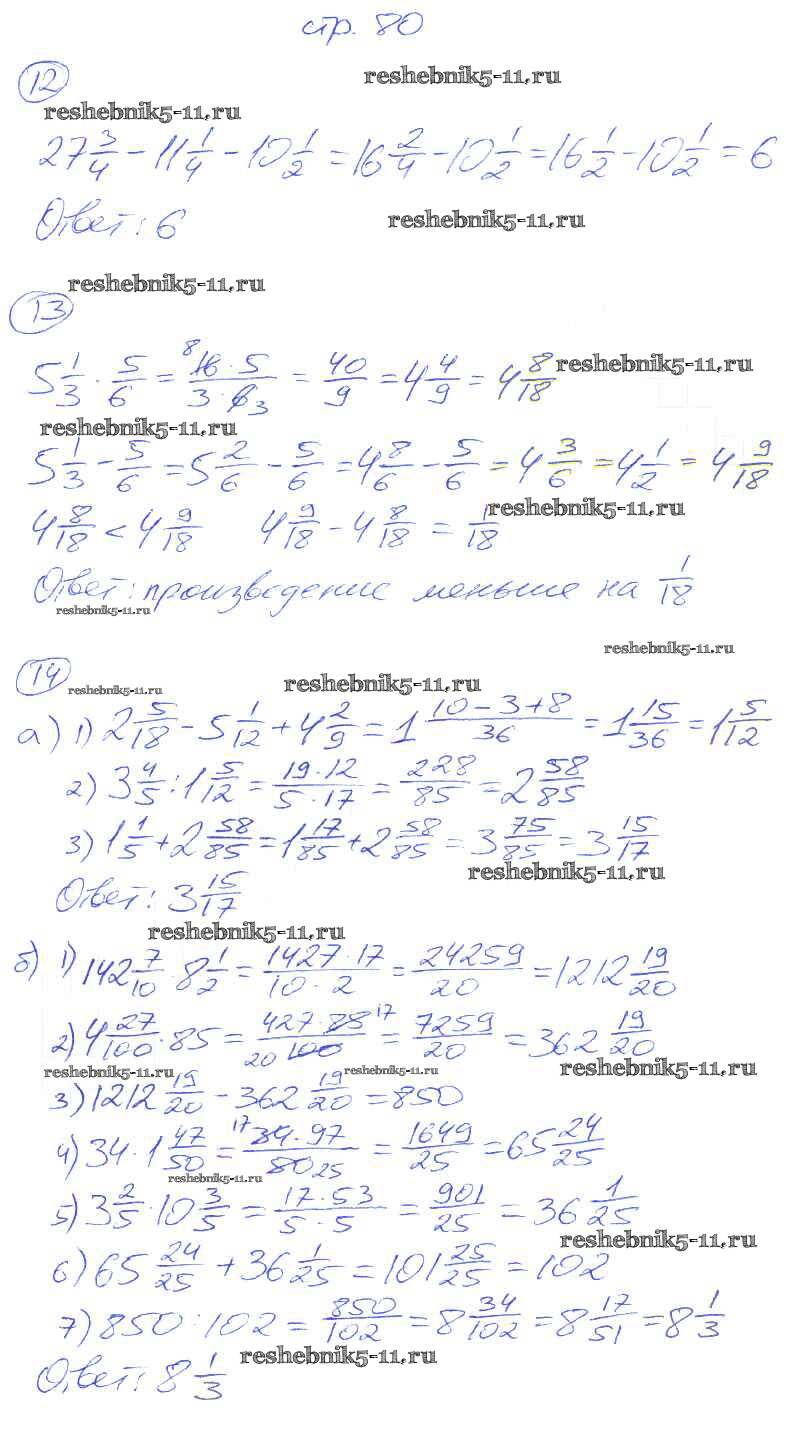 стр. 80
reshebnik5-11.ru
12
reshebnik5-11.ru
27 3/4 - 11 1/4 - 10 1/2 = 16 2/4 - 10 1/2 = 16 1/2 - 10 1/2 = 6
Ответ: 6
reshebnik5-11.ru
reshebnik5-11.ru
13
5 1/3 · 5/6 = 8 16·5/3·6 3 = 40/9 = 4 4/9 = 4 8/18
reshebnik5-11.ru
reshebnik5-11.ru
5 1/3 - 5/6 = 5 2/6 - 5/6 = 4 8/6 - 5/6 = 4 3/6 = 4 1/2 = 4 9/18
reshebnik5-11.ru
4 8/18 < 4 9/18 4 9/18 - 4 8/18 = 1/18
Ответ: произведение меньше на 1/18
reshebnik5-11.ru
reshebnik5-11.ru
14
reshebnik5-11.ru
reshebnik5-11.ru
а) 1) 2 5/18 - 5 1/12 + 4 2/9 = 1 10-3+8/36 = 1 15/36 = 1 5/12
2) 3 4/5 : 1 5/12 = 19·12/5·17 = 228/85 = 2 58/85
3) 1 1/5 + 2 58/85 = 1 17/85 + 2 58/85 = 3 75/85 = 3 15/17
reshebnik5-11.ru
Ответ: 3 15/17
reshebnik5-11.ru
б) 1) 142 7/10 · 8 1/2 = 1427·17/10·2 = 24259/20 = 1212 19/20
2) 4 27/100 · 85 = 427·85 17/20 100 = 7259/20 = 362 19/20
reshebnik5-11.ru
reshebnik5-11.ru
reshebnik5-11.ru
3) 1212 19/20 - 362 19/20 = 850
4) 34 · 1 47/50 = 17 34·97/50 25 = 1649/25 = 65 24/25
reshebnik5-11.ru
5) 3 2/5 · 10 3/5 = 17·53/5·5 = 901/25 = 36 1/25
reshebnik5-11.ru
6) 65 24/25 + 36 1/25 = 101 25/25 = 102
7) 850 : 102 = 850/102 = 8 34/102 = 8 17/51 = 8 1/3
reshebnik5-11.ru
Ответ: 8 1/3